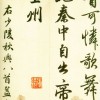 首可憐歌舞
秦中自古帝
王州
右少陵秋興八首